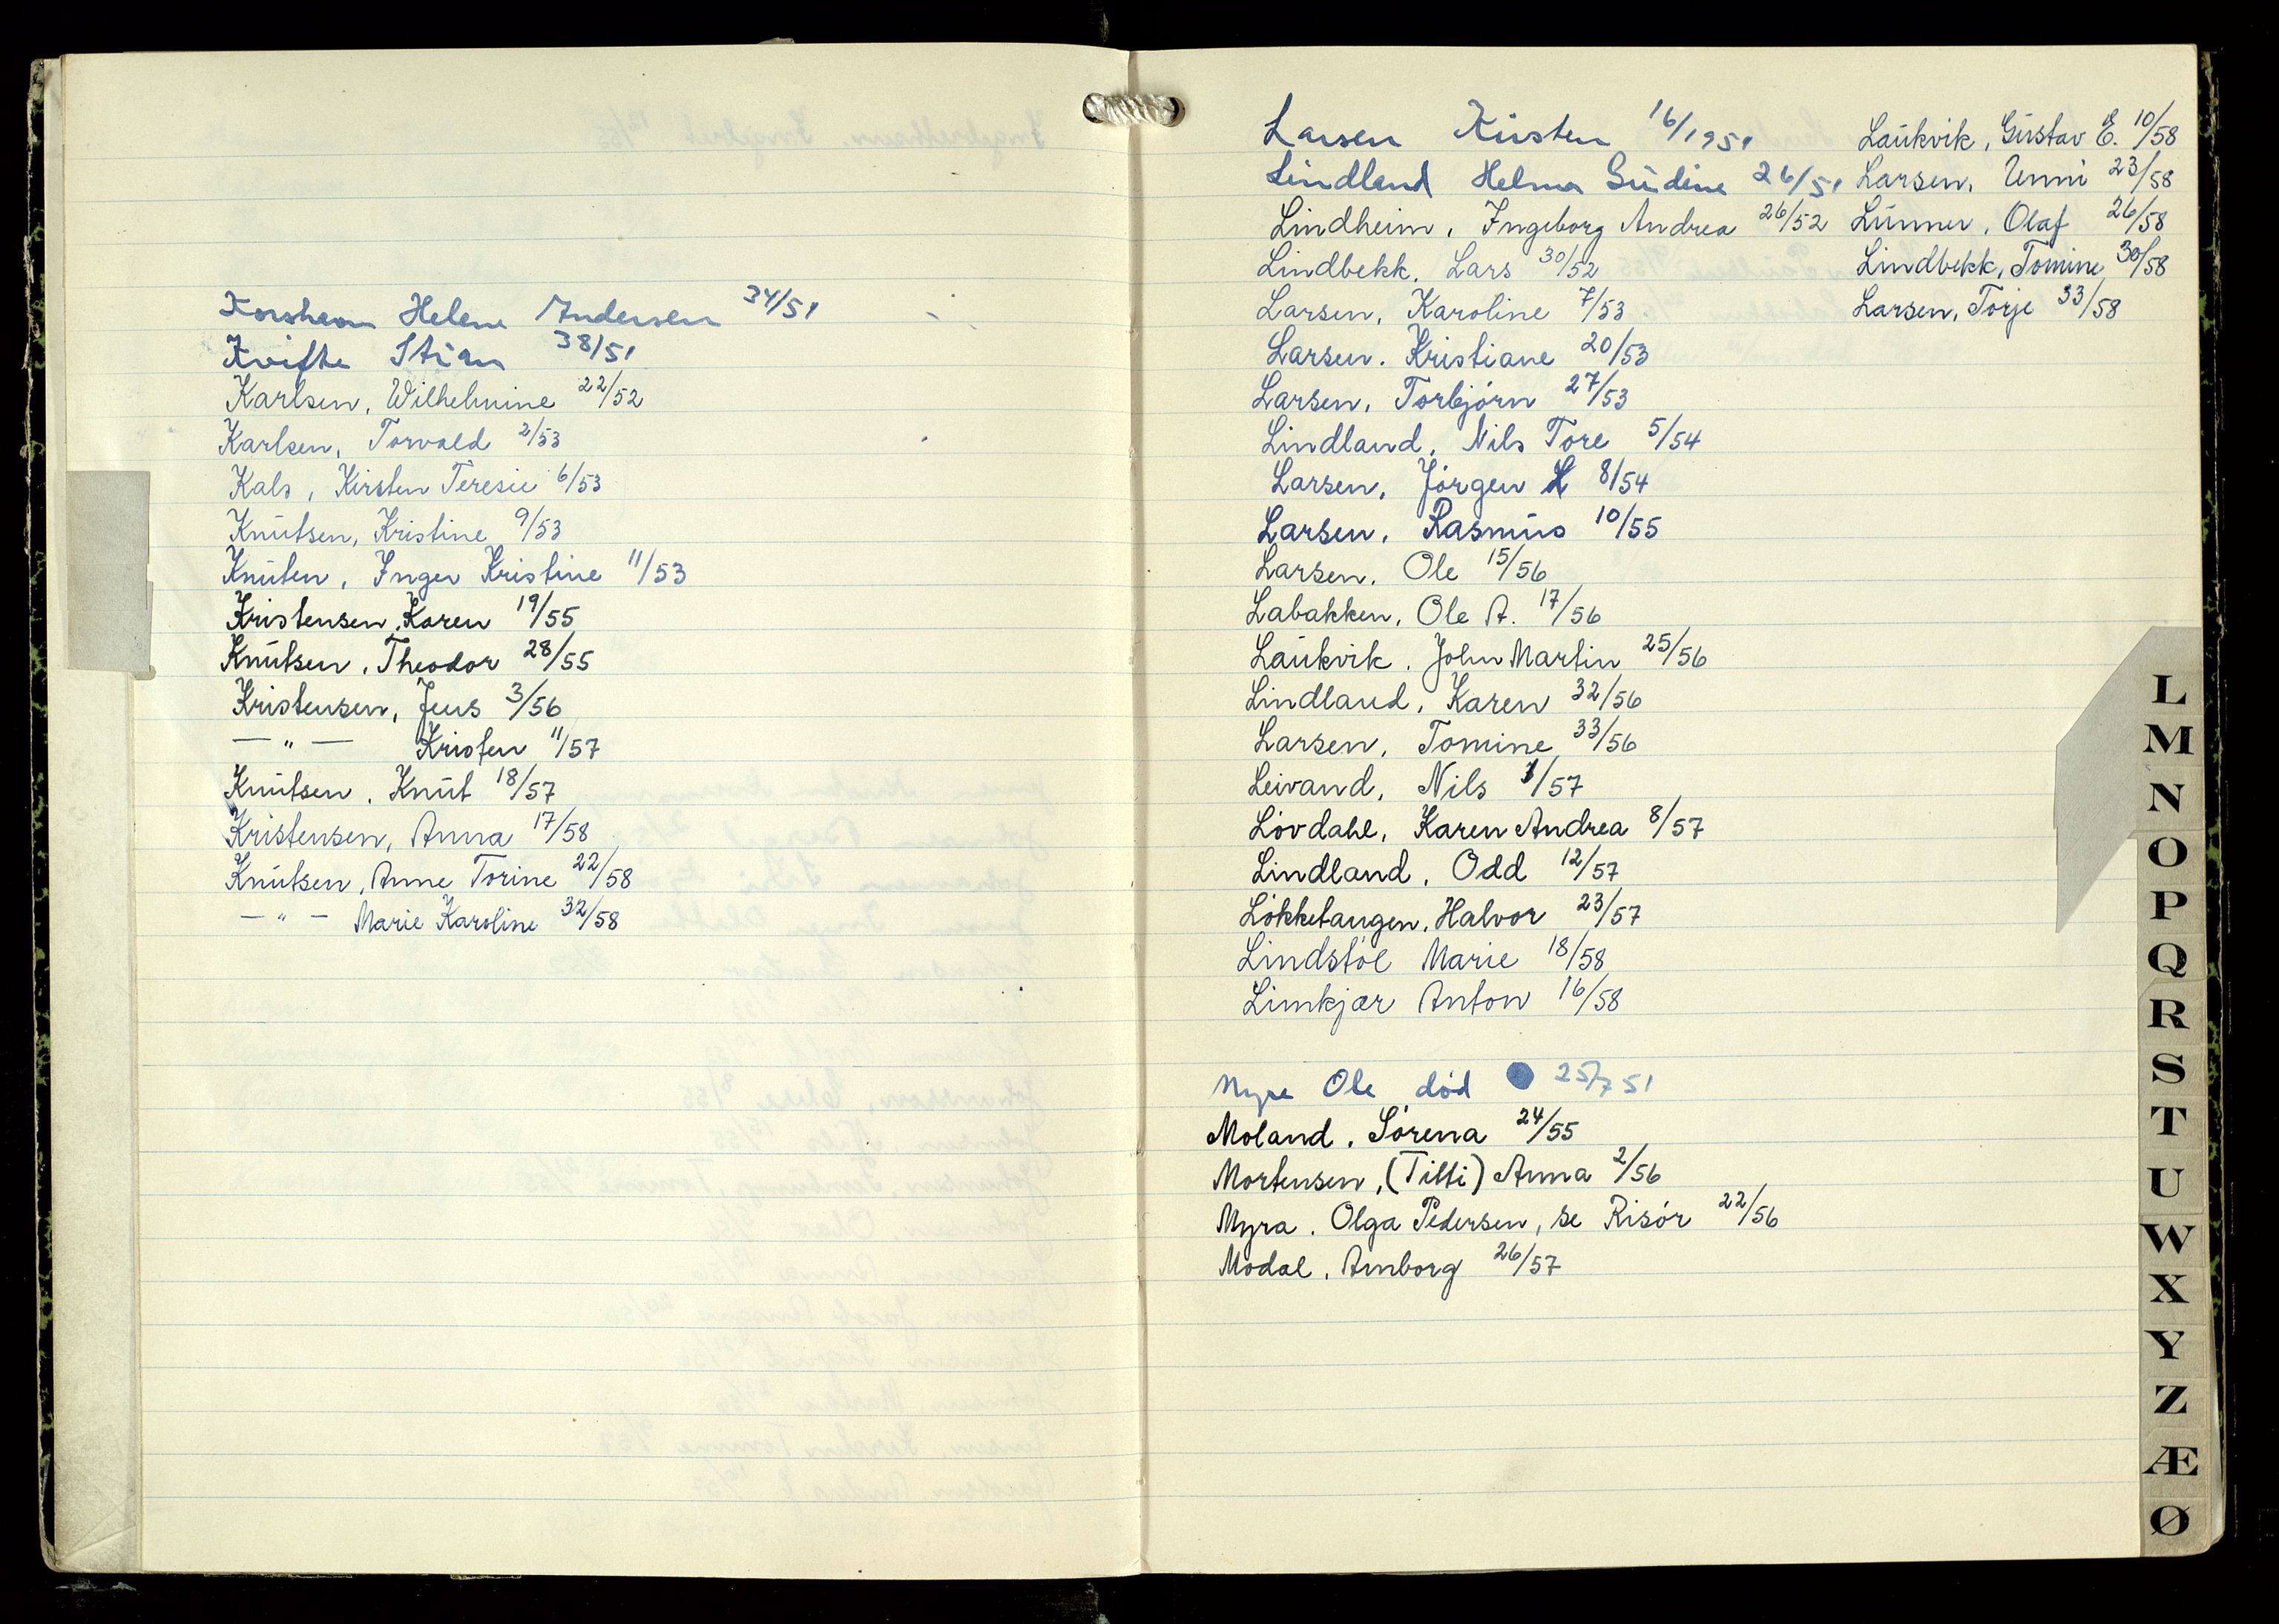 Korshavn Helene Andersen 34/51
Kvifte Stian 38/51
Karlsen, Wilhelmine 22/52
Karlsen, Torvald 2/53
Kals, Kirsten Teresie 6/53
Knutsen, Kristine 9/53
Knuten, Inger Kristine 11/53
Kristensen, Karen 19/55
Knutsen, Theodor 28/55
Kristensen, Jens 3/56
— " — Kristen 11/57
Knutsen, Knut 18/57
Kristensen, Anna 17/58
Knutsen, Anne Torine 22/58
— " — Marie Karoline 32/58
Larsen Kirsten 16/1951
Lindland Helma Gudine 26/51
Lindheim, Ingeborg Andrea 26/52
Lindbekk, Lars 30/52
Larsen, Karoline 7/53
Larsen, Kristiane 20/53
Larsen, Torbjörn 27/53
Lindland, Nils Tore 5/54
Larsen, Jörgen 8/54
Larsen, Rasmus 10/55
Larsen, Ole 15/56
Labakken, Ole A. 17/56
Laukvik, John Martin 25/56
Lindland, Karen 32/56
Larsen, Tomine 33/56
Leivand, Nils 1/57
Lövdahl, Karen Andrea 8/57
Lindland, Odd 12/57
Lökketangen, Halvor 23/57
Lindstöl Marie 18/58
Limkjær Anton 16/58
Laukvik, Gustav E. 10/58
Larsen, Unni 23/58
Lunner, Olaf 26/58
Lindbekk, Tomine 30/58
Larsen, Torje 33/58
Myre Ole död 25/7 51
Moland, Sörena 24/55
Mortensen, (Titti) Anna 2/56
Myra, Olga Pedersen, se Risör 22/56
Modal, Amborg 26/57
L
M
N
O
P
Q
R
S
T
U
W
X
Y
Z
Æ
Ø